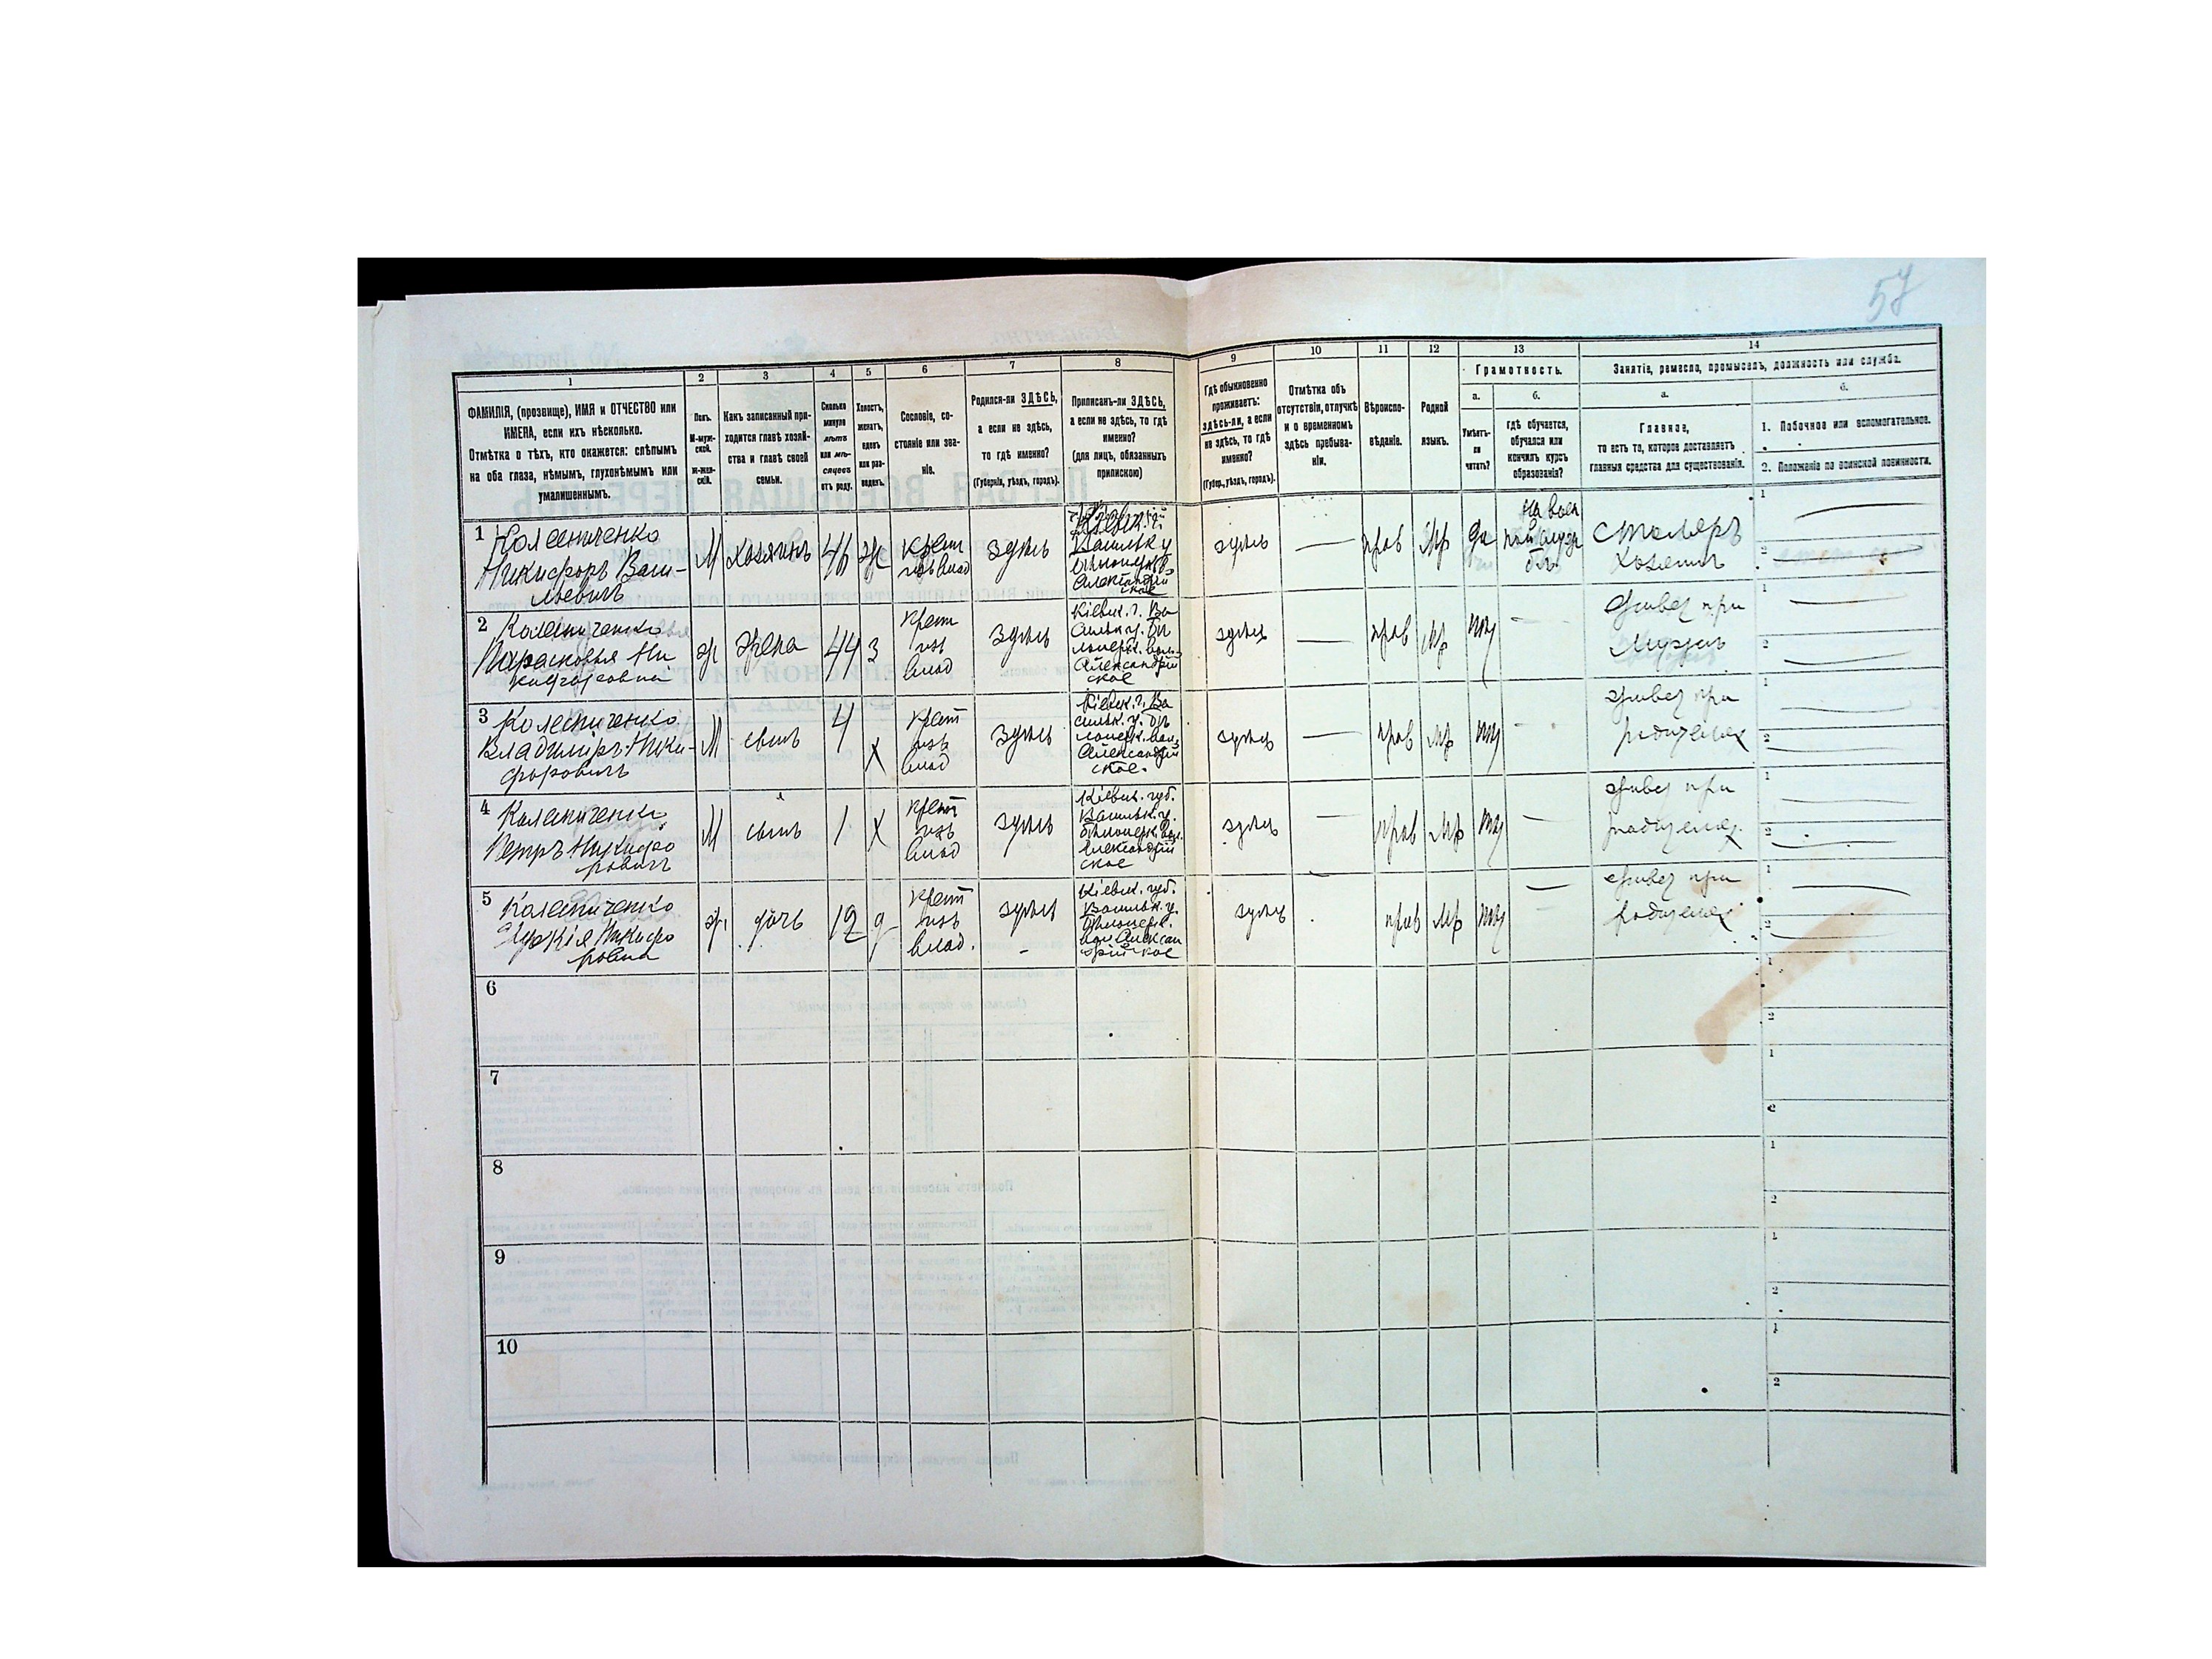 57
1
2
3
4
5
6
7
8
9
10
11
12
13
14
ФАМИЛІЯ, (прозвище), ИМЯ и ОТЧЕСТВО или
ИМЕНА, если ихъ нѣсколько.
Отмѣтка о тѣхъ, кто окажется: слѣпымъ
на оба глаза, нѣмымъ, глухонѣмымъ или
умалишеннымъ.
Полъ.
М-муж-
ской.
ж-жен-
скій.
Какъ записанный при-
ходится главѣ хозяй-
ства и главѣ своей
семьи.
Сколько
минуло
лѣтъ
или мѣ-
сяцевъ
отъ роду.
Холостъ,
женатъ,
вдовъ
или раз-
веденъ.
Сословіе, со-
стояніе или зва-
ніе.
Родился-ли ЗДѢСЬ,
а если не здѣсь,
то гдѣ именно?
(Губернія, уѣздъ, городъ).
Приписанъ-ли ЗДѢСЬ,
а если не здѣсь, то гдѣ
именно?
(для лицъ, обязанныхъ
припискою)
Гдѣ обыкновенно
проживаетъ:
здѣсь-ли, а если
не здѣсь, то гдѣ
именно?
(Губер., уѣздъ, городъ).
Отмѣтка объ
отсутствіи, отлучкѣ
и о временномъ
здѣсь пребыва-
ніи.
Вѣроиспо-
вѣданіе.
Родной
языкъ.
Грамотность.
а.
Умѣетъ-
ли
читать?
б.
гдѣ обучается,
обучался или
кончилъ курсъ
образованія?
Занятіе, ремесло, промыселъ, должность или служба.
а.
Главное,
то есть то, которое доставляетъ
главныя средства для существованія.
б.
1. Побочное или вспомогательное.
2. Положеніе по воинской повинности.
1
Колесниченко
Никифоръ Васи-
льевичъ
М
хозяинъ
46
ж
крест
изъ влад
здѣсь
Кіевск. г.
Васильк у
Александрій
ское
здѣсь
—
прав
Мр
да
на воен
столяръ
хозяинъ
1
2
2
Колесниченко
Парасковья Ни
кифоровна
ж
жена
44
з
крест
изъ
влад
здѣсь
Кіевск. г. Ва
сильк у. Бѣ
лоцерк. вол.
Александрій
ское
здѣсь
—
прав
Мр
нѣт
—
живет при
мужѣ
1
2
3
Колесниченко
Владиміръ Ники-
форовичъ
М
сынъ
4
х
крест
изъ
влад
здѣсь
Кіевск. г. Ва
сильк. у. Бѣ
лоцерк. вол.
Александрій
ское.
здѣсь
—
прав
Мр
нѣт
—
живет при
родителях
1
2
4
Колесниченко
Петръ Никифо
ровичъ
М
сынъ
1
х
крест
изъ
влад
здѣсь
Кіевск. губ.
Васильк. у.
Бѣлоцерк. вол.
Александрій
ское
здѣсь
—
прав
Мр
нѣт
—
живет при
родителях.
1
2
5
Колесниченко
Никифо
ровна
ж
дочь
12
д
крест
изъ
влад.
здѣсь
Кіевск. губ.
Васильк. у.
Бѣлоцерк.
вол Алексан
дрійское
здѣсь
прав
Мр
нѣт
—
живет при
родителях
1
2
6
1
2
7
1
2
8
1
2
9
1
2
10
1
2